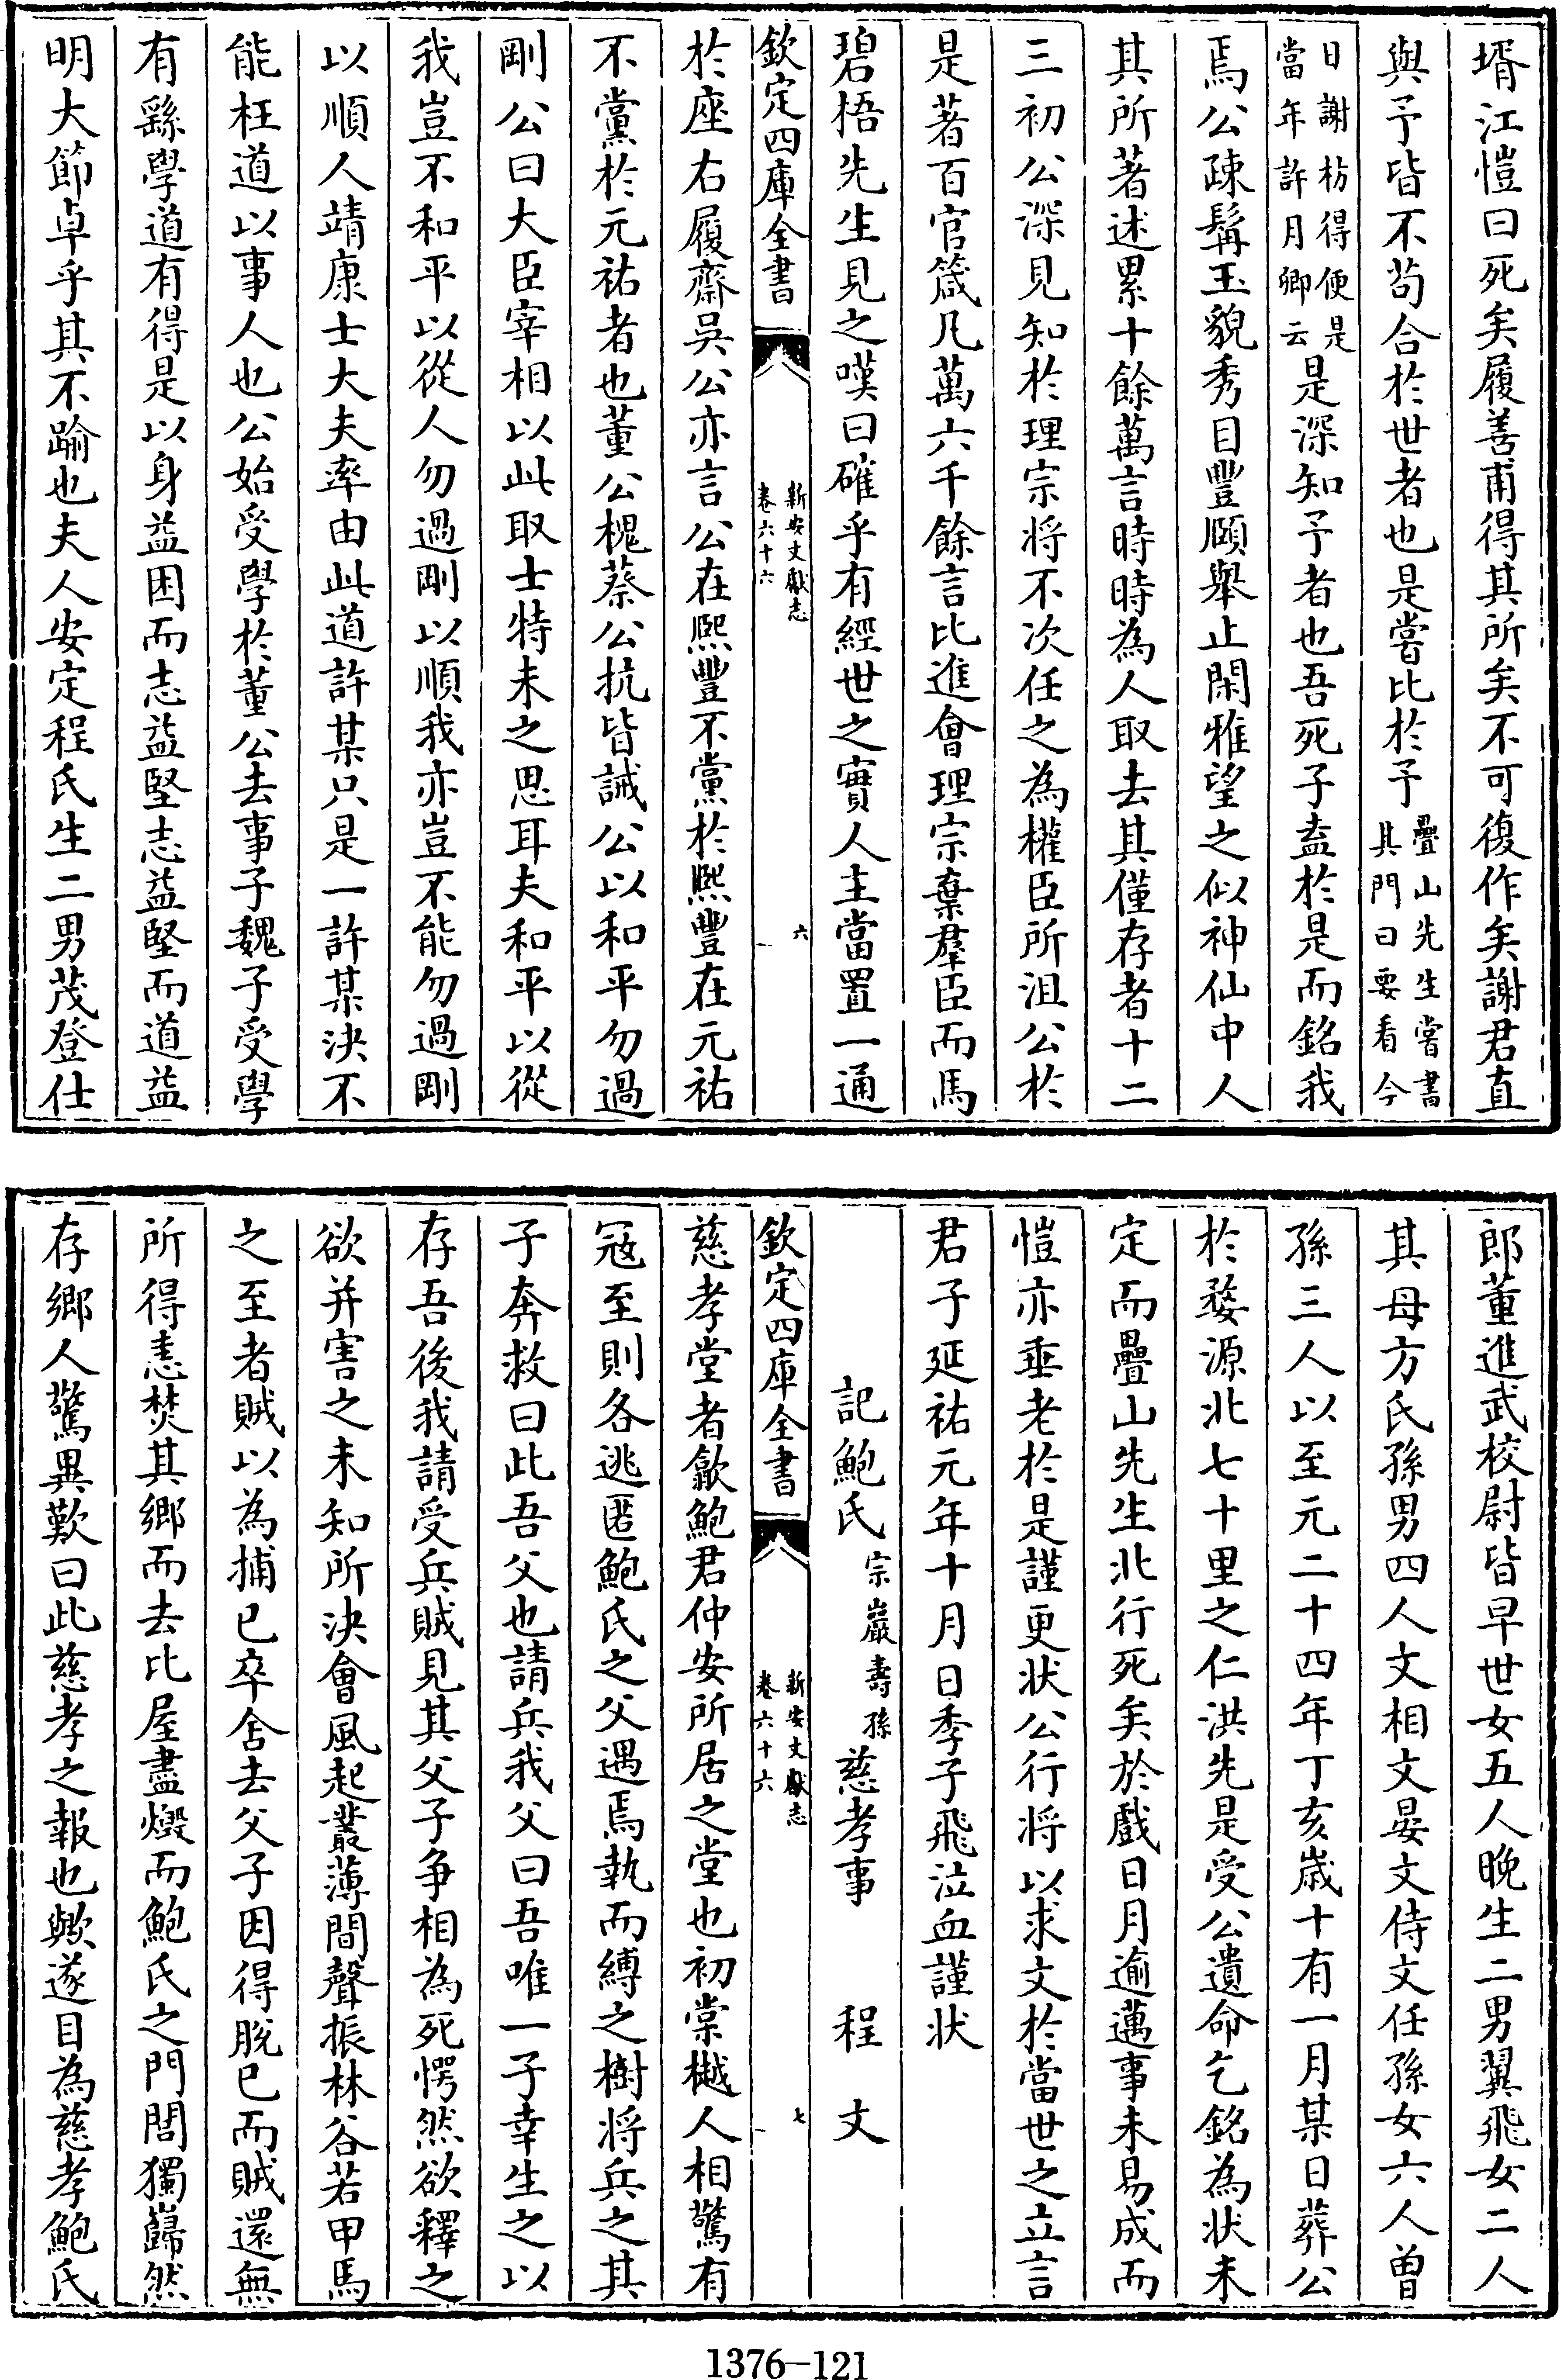 壻江愷曰死矣履善甫得其所矣不可復作矣謝君直
與予皆不茍合於世者也是嘗比於予疊山先生嘗書其門曰要看今
日謝枋得便是當年許月卿云是深知予者也吾死子盍於是而銘我
焉公疎髯玉貌秀目豐頤舉止閑雅望之似神仙中人
其所著述累十餘萬言時時為人取去其僅存者十二
三初公深見知於理宗將不次任之為權臣所沮公於
是著百官箴凡萬六千餘言比進會理宗棄羣臣而馬
碧梧先生見之嘆曰確乎有經世之實人主當置一通
欽定四庫全書
新安文獻志
卷六十六
六
於座右履齋吳公亦言公在熙豐不黨於熙豐在元祐
不黨於元祐者也董公槐蔡公抗皆誡公以和平勿過
剛公曰大臣宰相以此取士特未之思耳夫和平以從
我豈不和平以從人勿過剛以順我亦豈不能勿過剛
以順人靖康士大夫率由此道許某只是一許某決不
能枉道以事人也公始受學於董公去事子魏子受學
有繇學道有得是以身益困而志益堅志益堅而道益
明大節卓乎其不踰也夫人安定程氏生二男茂登仕
郎董進武校尉皆早世女五人晚生二男翼飛女二人
其母方氏孫男四人文相文晏文侍文任孫女六人曾
孫三人以至元二十四年丁亥歲十有一月某日葬公
於婺源北七十里之仁洪先是受公遺命乞銘為狀未
定而疊山先生北行死矣於戲日月逾邁事未易成而
愷亦垂老於是謹更狀公行將以求文於當世之立言
君子延祐元年十月日季子飛泣血謹狀
記鮑氏宗巖壽孫慈孝事　程文
欽定四庫全書
新安文獻志
卷六十六
七
慈孝堂者歙鮑君仲安所居之堂也初棠樾人相驚有
寇至則各逃匿鮑氏之父遇焉執而縛之樹將兵之其
子奔救曰此吾父也請兵我父曰吾唯一子幸生之以
存吾後我請受兵賊見其父子爭相為死愕然欲釋之
欲并害之未知所決會風起叢薄間聲振林谷若甲馬
之至者賊以為捕已卒舍去父子因得脫已而賊還無
所得恚焚其鄉而去比屋盡燬而鮑氏之門閭獨巋然
存鄉人驚異歎曰此慈孝之報也歟遂目為慈孝鮑氏
1376—121